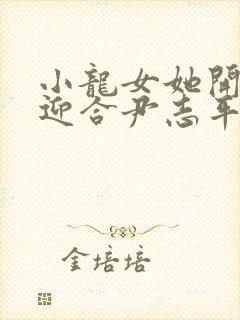 小龍女她開
迎合尹志平
金培培